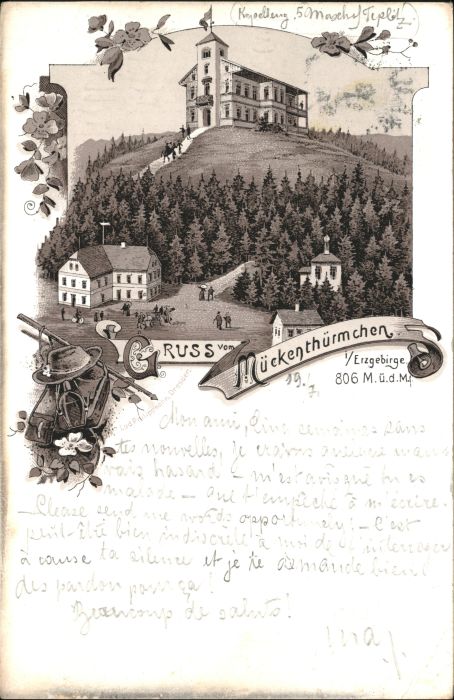 (Kapelleng. 5 Maschs/Teplitz)
GRUSS vom Mückenthürmchen
i/Erzgebirge
806 M. ü. d. M.
19/7
Mon ami, cinq semaines sans
tes nouvelles, je crains aucune mau
vais hasard – m'est avis que tu es
malade – que t'empêche à m'écrire.
– Please send me words opportunely! – C'est
peut-être bien indiscrete à moi de t'interroger
à cause ta silence et je te demande bien
des pardon pour ça!
Beaucoup de saluts!